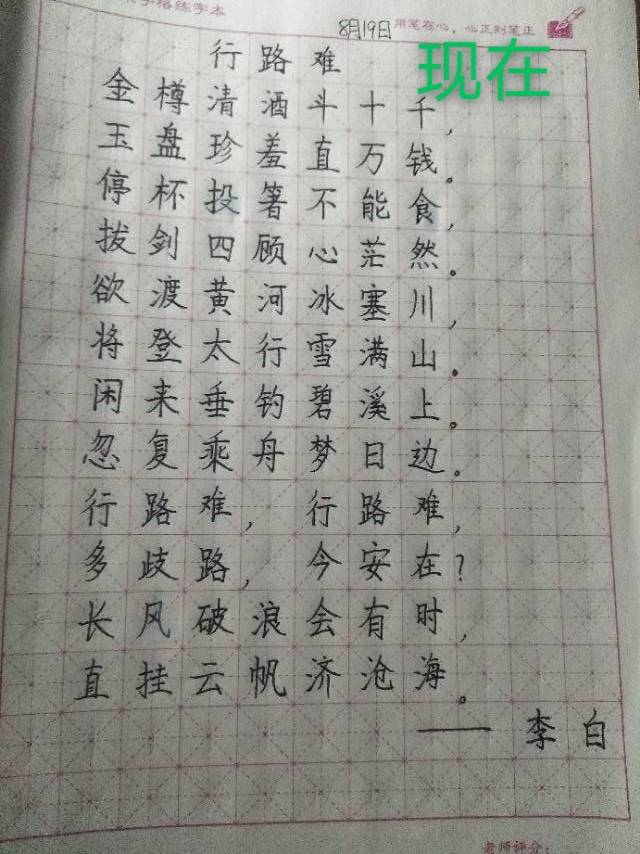 格练字本
8月19日 用笔在心，心正则笔正
现在
行路难
金樽清酒斗十千，
玉盘珍羞直万钱。
停杯投箸不能食，
拔剑四顾心茫然。
欲渡黄河冰塞川，
将登太行雪满山。
闲来垂钓碧溪上。
忽复乘舟梦日边。
行路难，行路难，
多歧路，今安在？
长风破浪会有时，
直挂云帆济沧海。
——李白
老师评分：